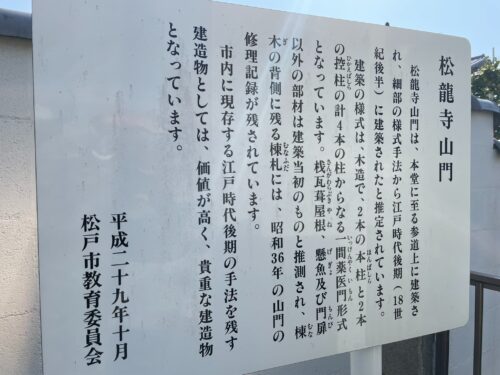 松龍寺山門
松龍寺山門は、本堂に至る参道上に建築さ
れ、細部の様式手法から江戸時代後期（18世
紀後半）に建築されたと推定されています。
建築の様式は、木造で、2本の本柱と2本
の控柱の計4本の柱からなる一間薬医門形式
となっています。桟瓦葺屋根、懸魚及び門扉
以外の部材は建築当初のものと推測され、棟
木の背側に残る棟札には、昭和36年の山門の
修理記録が残されています。
市内に現存する江戸時代後期の手法を残す
建造物としては、価値が高く、貴重な建造物
となっています。
平成二十九年十月
松戸市教育委員会